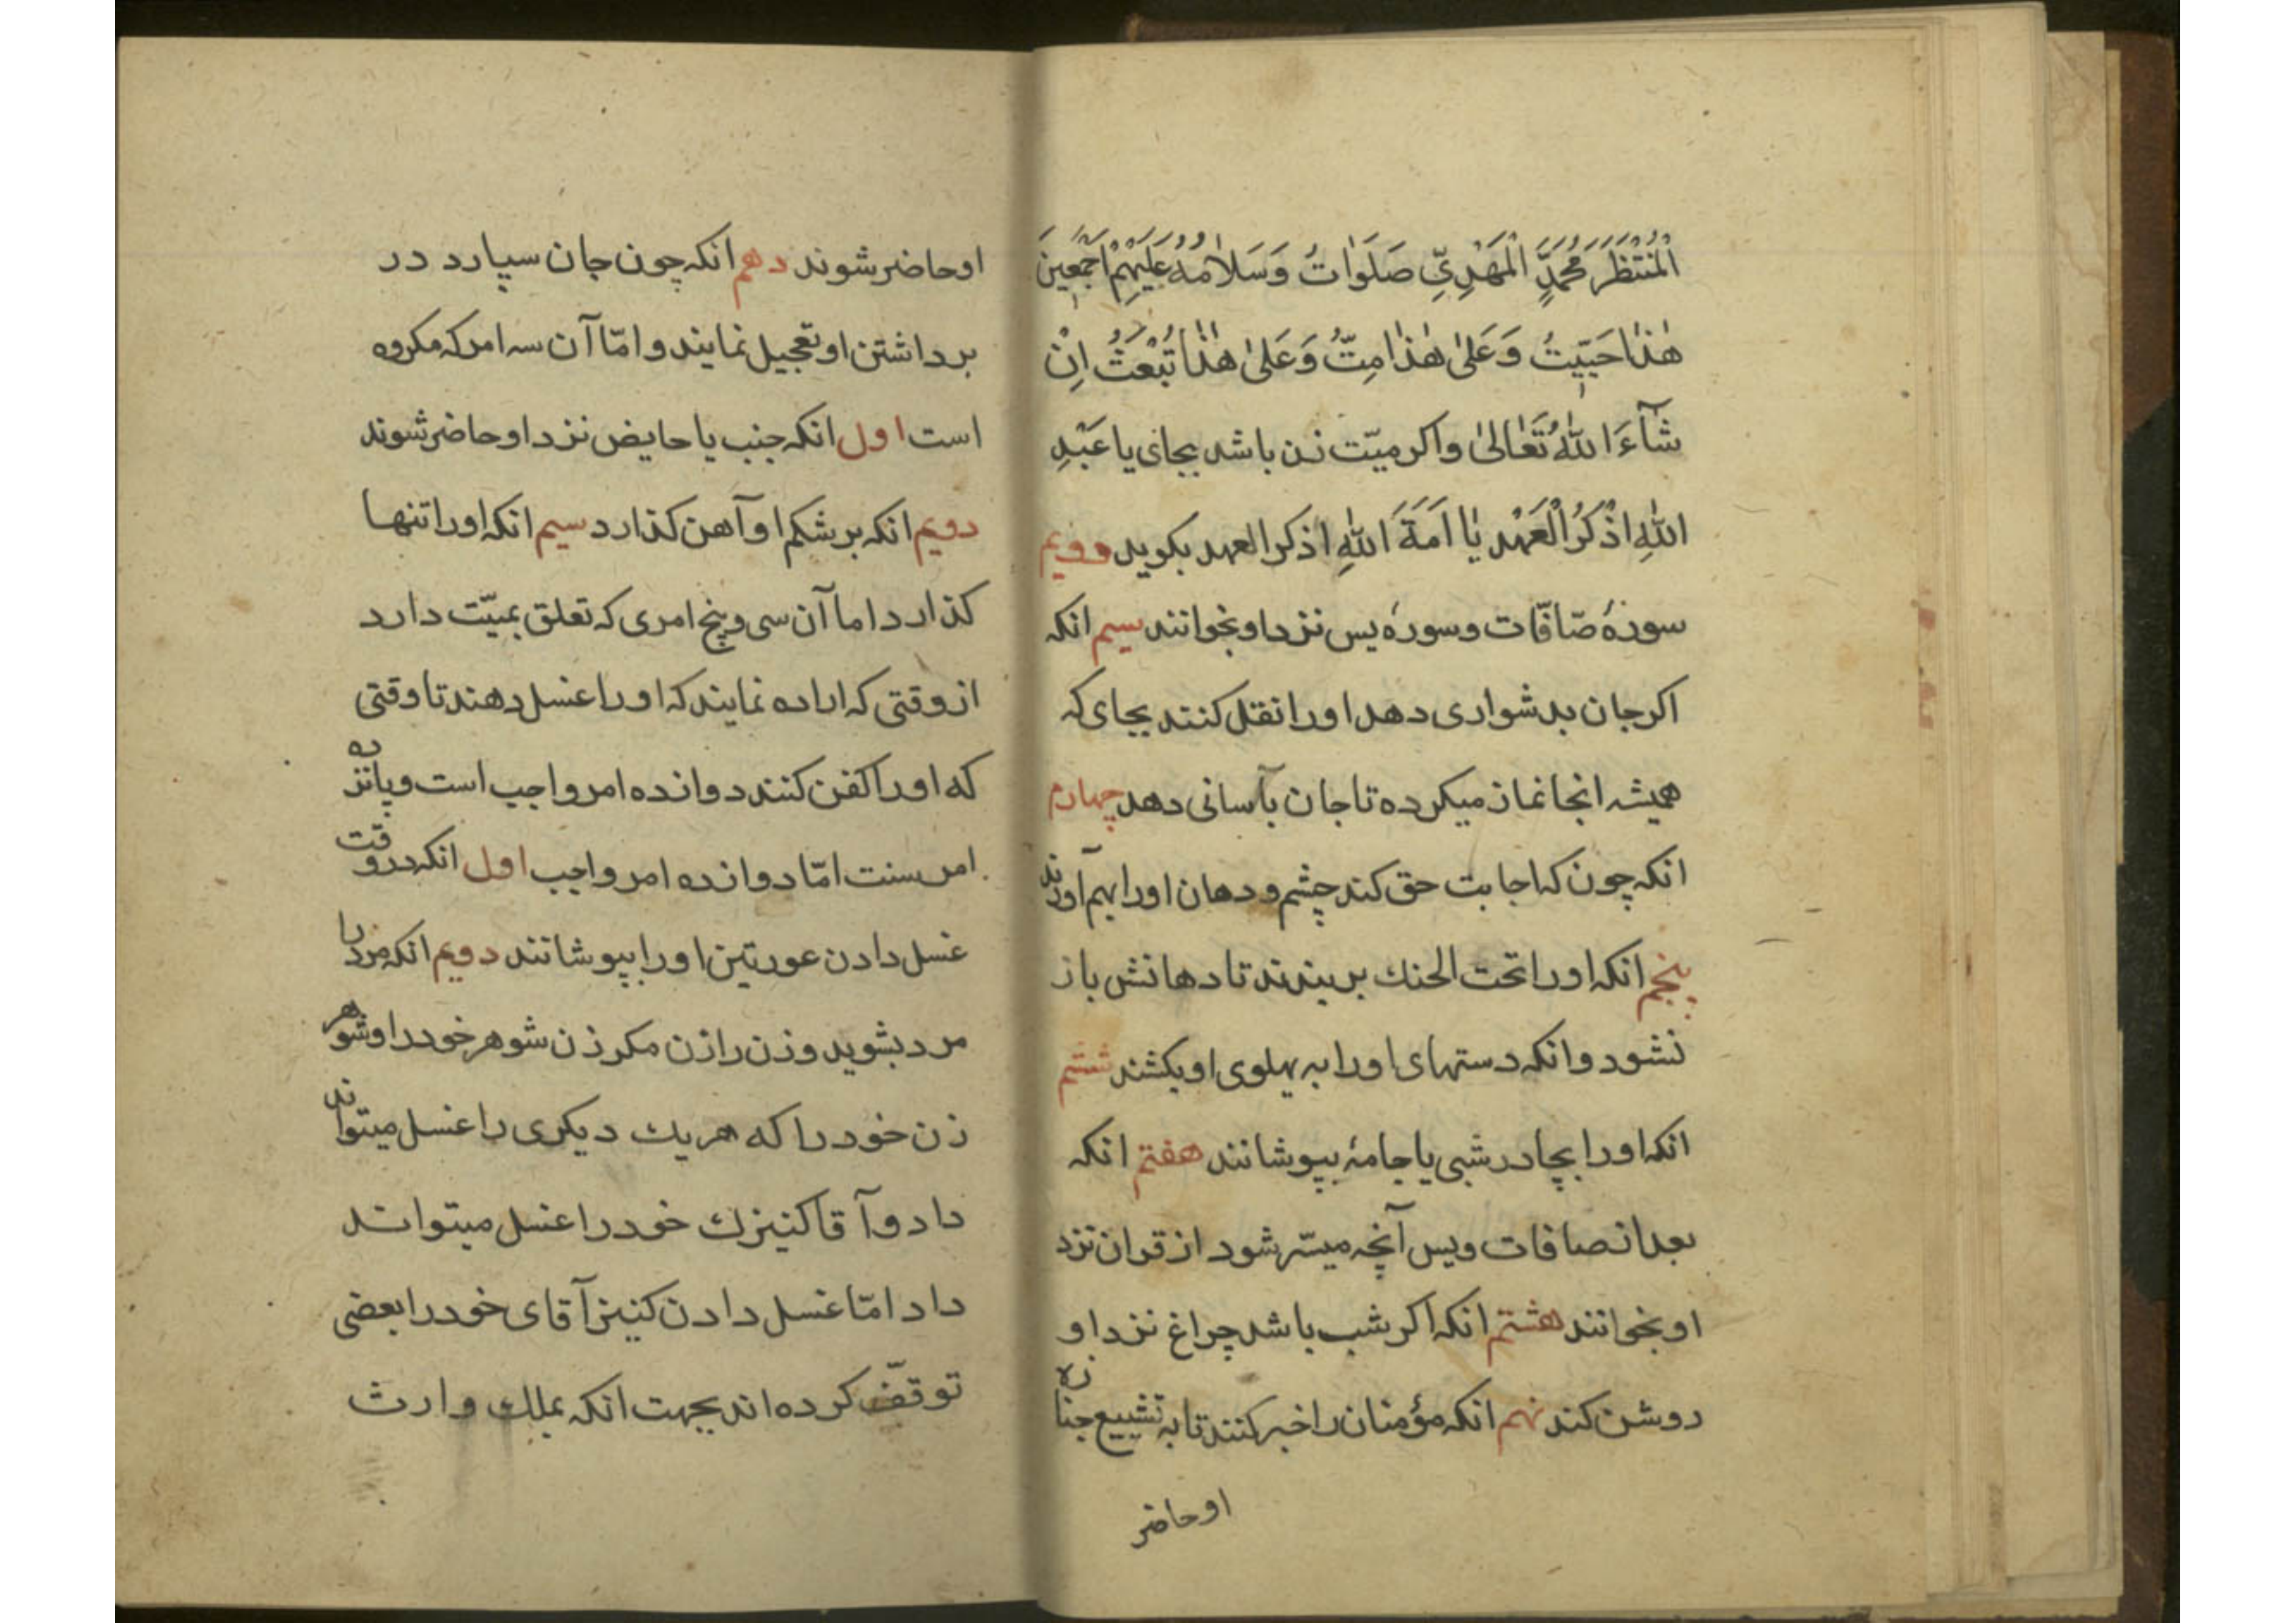 الْمُنْتَظَرَ مُحَمَّدٍ الْمَهْدِيِّ صَلَوٰاتُ وَسَلاٰمُهُ عَلَيْهِمْ اَجْمَعِينَ
هٰذٰا حَيَيتُ وَعَلیٰ هٰذٰا مِتَّ وَعَلیٰ هٰذٰا تُبْعَثُ اِنْ
شٰآءَ اللّٰهُ تَعٰالیٰ واکر میّت زن باشد بجای یا عَبْدِ
اللّٰهِ اذْكَرُ الْعَهْد یٰا اَمَةَ اللّٰهِ اذکر العهد بکوید دویم
سورهٔ صّافّات وسورهٔ یس نزد او بخوانند سیم انکه
اکر جان بدشواری دهد اورا نقل کنند بجای که
همیشه انجا نماز میکرده تا جان بآسانی دهد چهارم
انکه چون که اجابت حق کند چشم و دهان اورا بهم آورند
پنجم انکه اورا تحت الحنك بربندند تا دهانش باز
نشود وانکه دستهای اورا به پهلوی او بکشند ششم
انکه اورا بچادر شبی یا جامهٔ بپوشانند هفتم انکه
بعد از صافات ویس آنچه میسّر شود از قران نزد
او بخوانند هشتم انکه اکر شب باشد چراغ نزد او
روشن کند نهم انکه مؤمنان را خبر کنند تا به تشییع جنازه
او حاضر
او حاضر شوند دهم انکه چون جان سپارد در
برداشتن او تعجیل نمایند و امّا آن سه امر که مکروه
است اول انکه جنب یا حایض نزد او حاضر شوند
دویم انکه بر شکم او آهن کذارد سیم انکه اورا تنها
کذارد اما آن سی و پنج امری که تعلق بمیّت دارد
از وقتی که اراده نمایند که اورا غسل دهند تا وقتی
که اورا کفن کنند دوازده امر واجب است و پانزده
امر سنت امّا دوازده امر واجب اول انکه در وقت
غسل دادن عورتین اورا بپوشانند دویم انکه مرد را
مرد بشوید وزن را زن مکر زن شوهر خود را وشوهر
زن خود را که هر یك دیکری را غسل میتوانند
داد و آقا کنیزك خود را غسل میتواند
داد امّا غسل دادن کنیز آقای خود را بعضی
توقّف کرده اند بجهت انکه بملك وارث